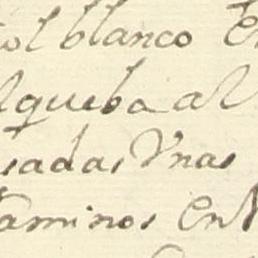 ol blanco E
lqueba al
sadas Vnas
aminos en